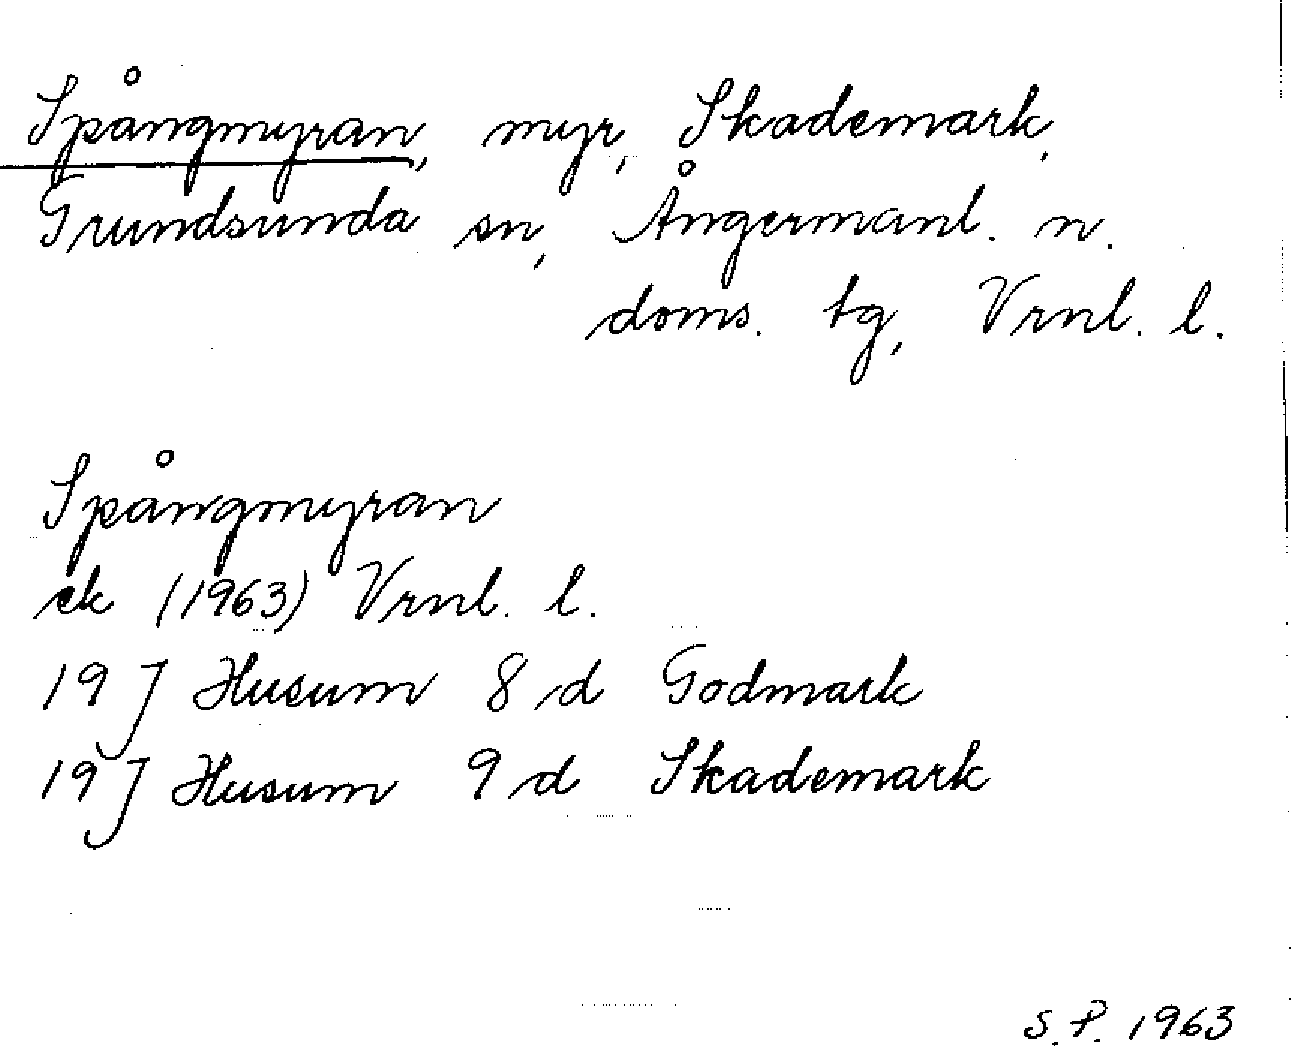 Spångmyran, myr, Skademark,
Grundsunda sn, Ångermanl. n.
doms. tg, Vrnl. l.
Spångmyran
ek (1963) Vrnl. l.
19 J Husum 8 d Godmark
19 J Husum 9 d Skademark
S.P. 1963